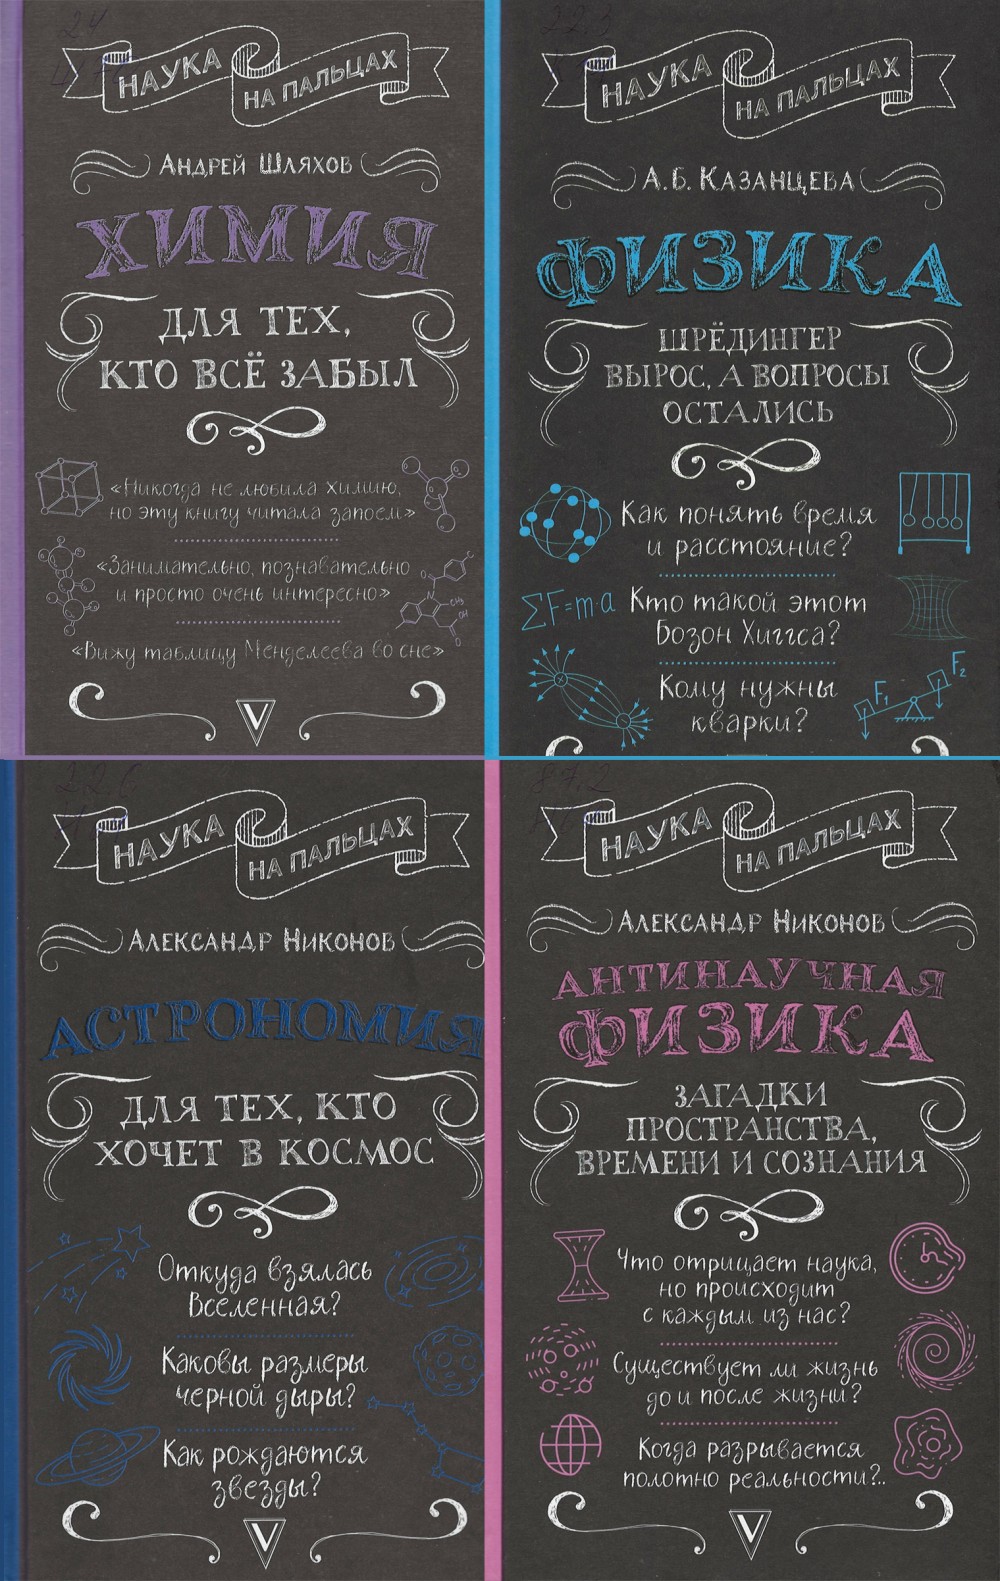 НАУКА
НА ПАЛЬЦАХ
АНДРЕЙ ШЛЯХОВ
ХИМИЯ
ДЛЯ ТЕХ,
КТО ВСЁ ЗАБЫЛ
«Никогда не любила химию,
но эту книгу читала запоем»
«Занимательно, познавательно
и просто очень интересно»
«Вижу таблицу Менделеева во сне»
V
НАУКА
НА ПАЛЬЦАХ
А.Б. КАЗАНЦЕВА
ФИЗИКА
ШРЁДИНГЕР
ВЫРОС, А ВОПРОСЫ
ОСТАЛИСЬ
Как понять время
и расстояние?
ΣF=m·a
Кто такой этот
Бозон Хиггса?
F₁
F₂
Кому нужны
кварки?
НАУКА
НА ПАЛЬЦАХ
АЛЕКСАНДР НИКОНОВ
АСТРОНОМИЯ
ДЛЯ ТЕХ, КТО
ХОЧЕТ В КОСМОС
Откуда взялась
Вселенная?
Каковы размеры
черной дыры?
Как рождаются
звезды?
V
НАУКА
НА ПАЛЬЦАХ
АЛЕКСАНДР НИКОНОВ
АНТИНАУЧНАЯ
ФИЗИКА
ЗАГАДКИ
ПРОСТРАНСТВА,
ВРЕМЕНИ И СОЗНАНИЯ
Что отрицает наука,
но происходит
с каждым из нас?
Существует ли жизнь
до и после жизни?
Когда разрывается
полотно реальности?..
V